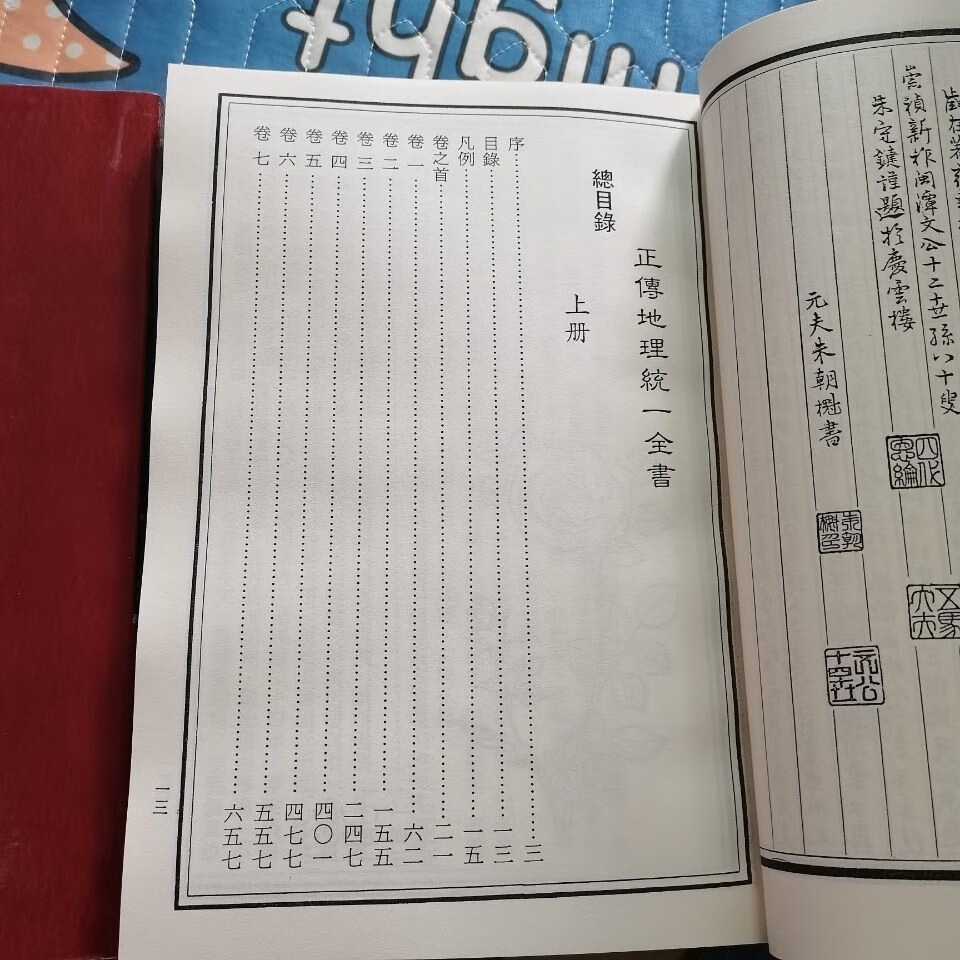 崇禎新祚閩潭文公十二世孫八十叟
朱定鍵謹題於慶雲樓
元夫朱朝櫆書
四代恩綸
正傳地理統一全書
總目錄
上册
序……三
目錄……一三
凡例……一五
卷之首……二一
卷一……六二
卷二……一五五
卷三……二四七
卷四……四〇一
卷五……四七七
卷六……五五七
卷七……六五七
一三